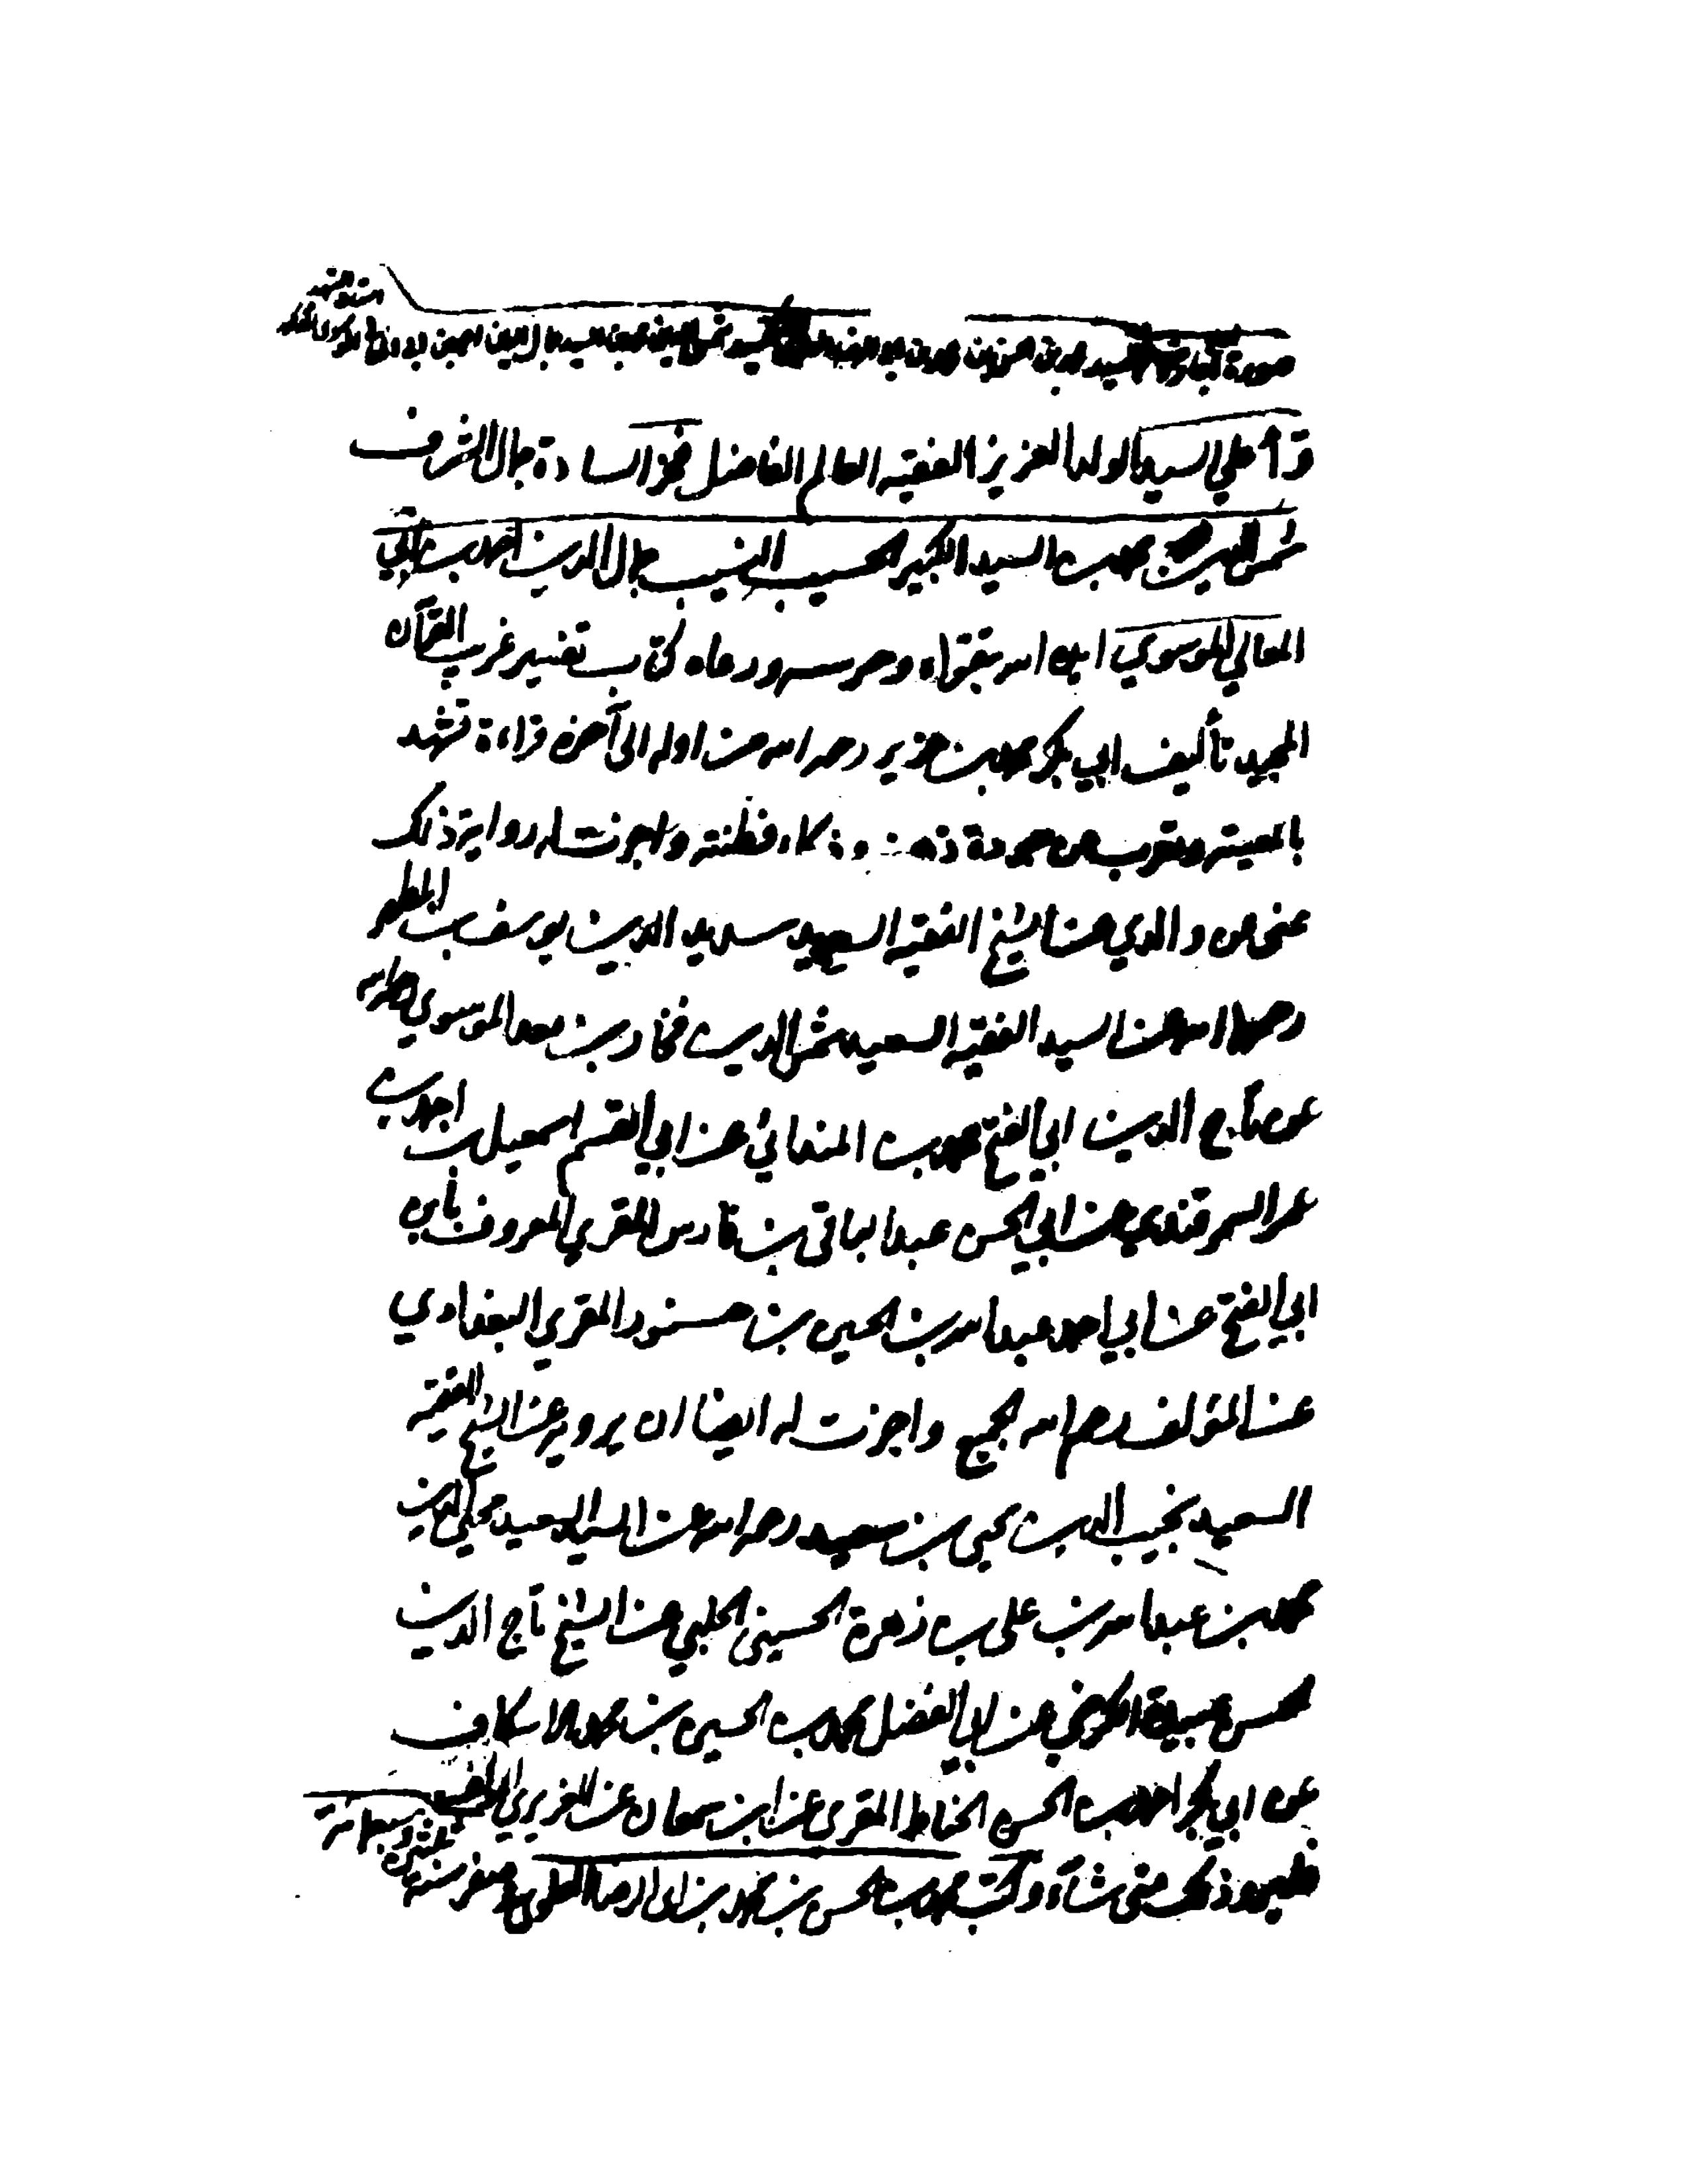 صورة اجازة السيد محمد بن الحسن بن محمد بن ابي الرضا العلوي للسيد شمس الدين محمد بن السيد جمال الدين احمد بن ابي المعالي
قرأ علي السيد الولد العزيز الفقيه العالم الفاضل فخر السادة جمال الشرف
شمس الدين محمد بن السيد الكبير الحسيب النسيب جمال الدين احمد بن ابي
المعالي الموسوي ايده الله بتقواه وحرسه ورعاه كتاب تفسير غريب القرآن
المجيد تأليف ابي بكر محمد بن عزيز رحمه الله من اوله الى آخره قراءة تشهد
بالمعيته وتعرب عن جودة ذهنه وذكاء فطنته واجزت له رواية ذلك
عني عن والدي عن الشيخ الفقيه السعيد سديد الدين يوسف بن المطهر
رحمهما الله عن السيد الفقيه السعيد شمس الدين فخار بن معد الموسوي رحمه الله
عن تاج الدين ابي الفتح محمد بن المندائي عن ابي القسم اسمعيل بن احمد بن
عمر السمرقندي عن ابي الحسن عبد الباقي بن فارس المقري المعروف بابن
ابي الفتح عن ابي احمد عبد الله بن الحسين بن حسنون المقري البغدادي
عن المؤلف رحمه الله لجميع واجزت له ايضا ان يرويه عن الشيخ الفقيه
السعيد نجيب الدين يحيى بن سعيد رحمه الله عن السيد السعيد محيي الدين
محمد بن عبد الله بن علي بن زهرة الحسيني الحلبي عن الشيخ تاج الدين
الحسن عن ابي الفضل محمد بن الحسين بن محمد الاسكاف
عن ابي بكر احمد بن الحسن الخياط المقري عن ابن سمعان عن العزيزي المؤلف
فليرو ذلك متى شآء وكتب محمد بن الحسن بن محمد بن ابي الرضا العلوي صفر سنة ثلثين وسبعمائة